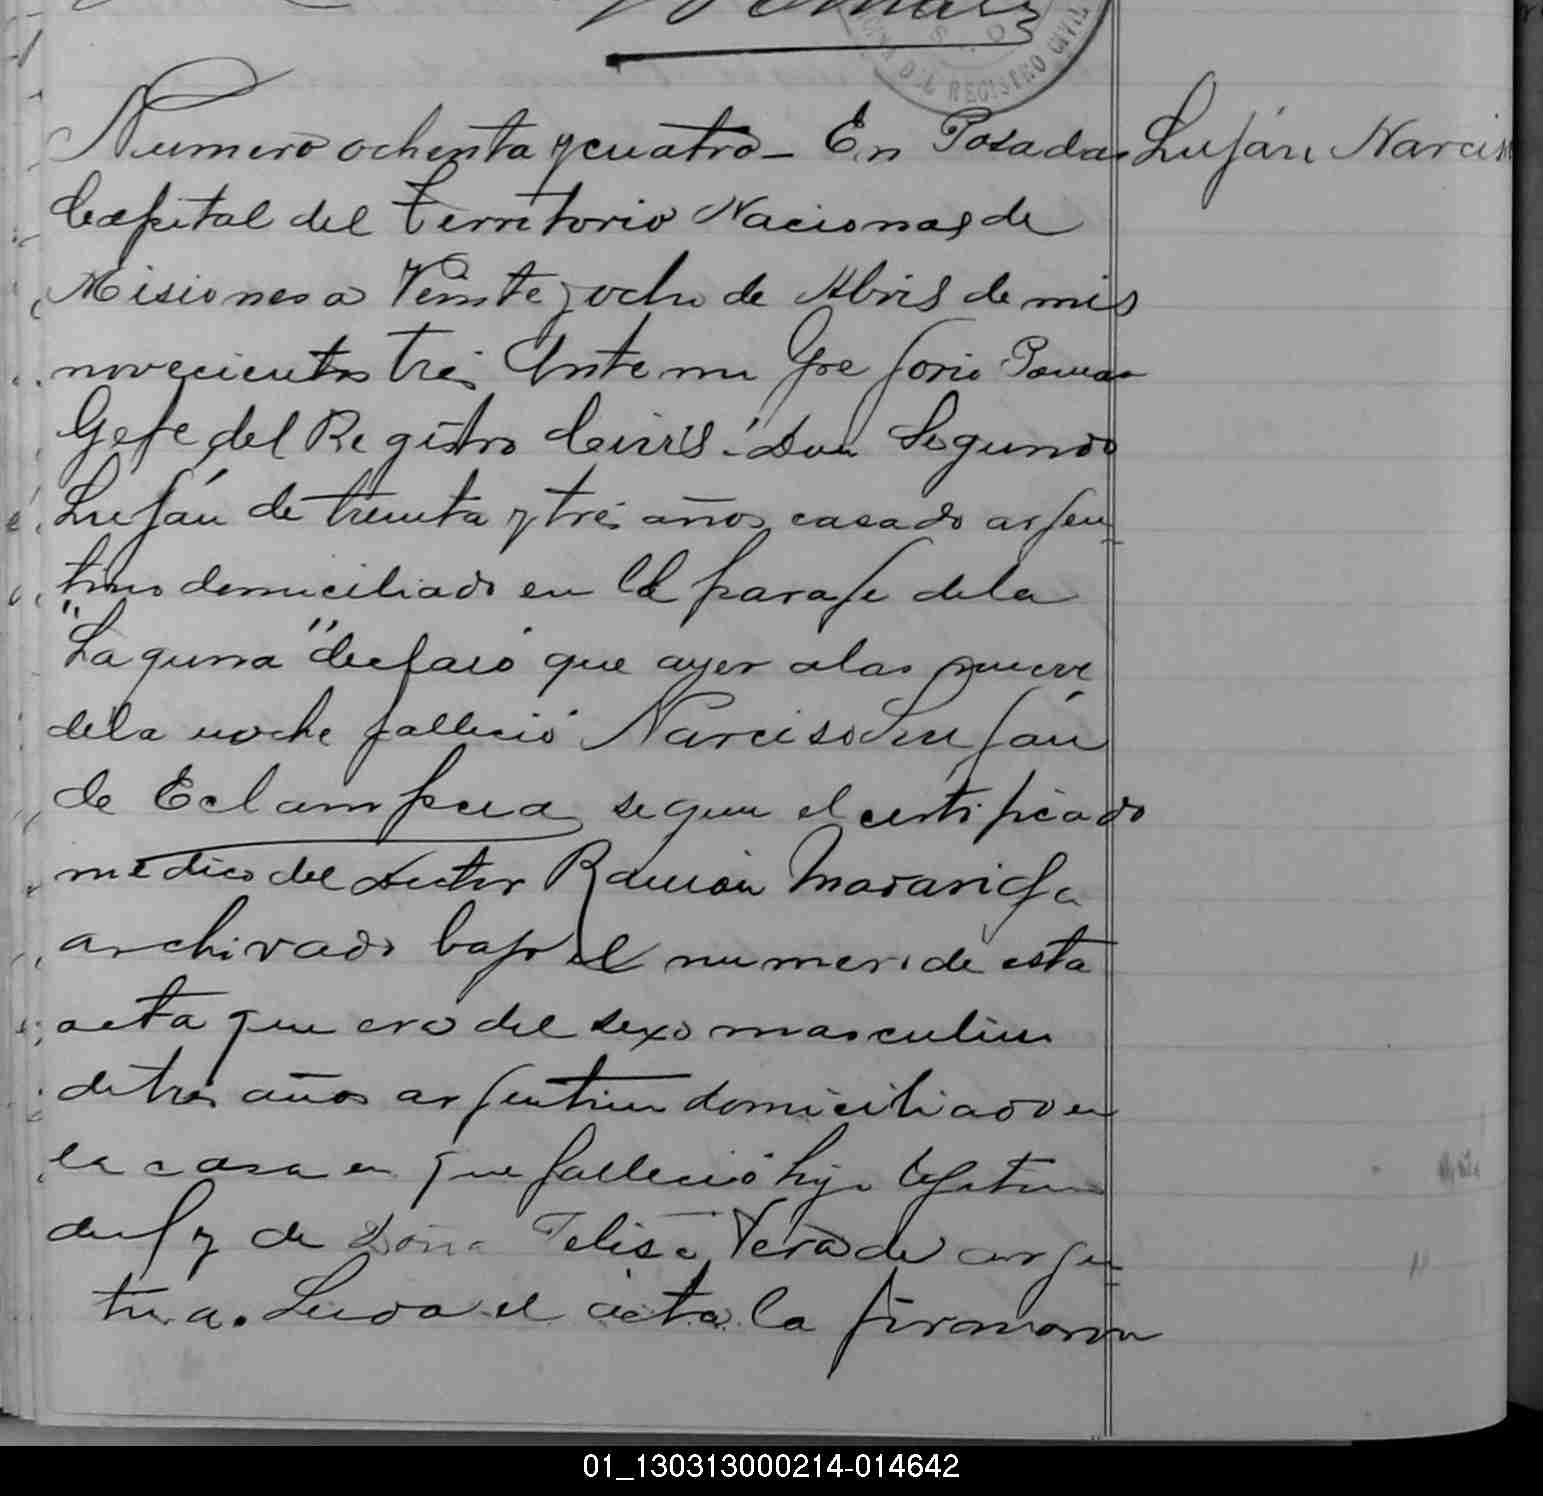 OFICINA DEL REGISTRO CIVIL
Numero ochenta y cuatro – En Posadas
Luján Narciso
Capital del Territorio Nacional de
Misiones a Veinte y ocho de Abril de mil
novecientos tres Ante mi Gregorio Pomar
Gefe del Registro Civil. Don Segundo
Luján de treinta y tres años casado argen
tino domiciliado en el paraje de la
"Laguna" declaró que ayer a las nueve
de la noche falleció Narciso Luján
de Eclampcia segun el certificado
médico del doctor Ramón Madariaga
archivado bajo el numero de esta
acta que era del sexo masculino
de tres años argentino domiciliado en
la casa en que falleció hijo legitimo
del y de Doña Felisa Vera de argen
tina. Leida el acta la firmaron
01_130313000214-014642